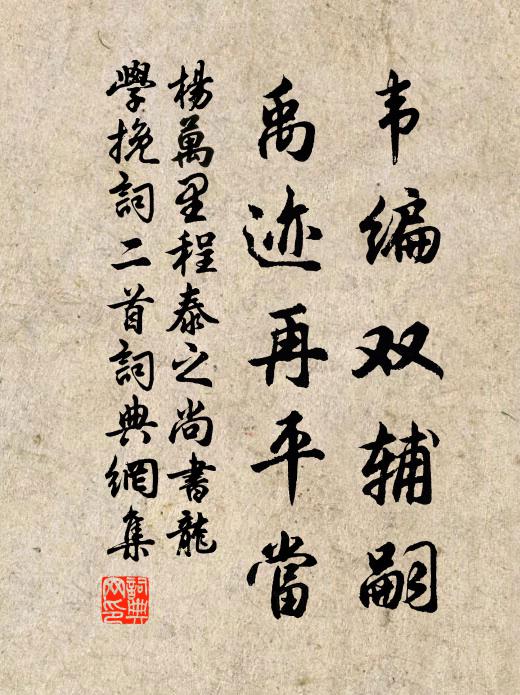 韦编双辅嗣
禹迹再平當
楊萬里程泰之尚書龍
學挽詞二首詞典網集
詞典网印